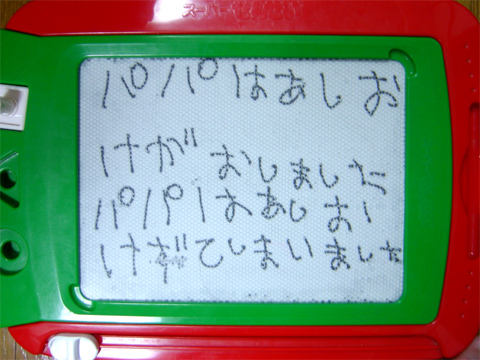 スーパー
パパはあしお
けがおしました
パパはあしお
けがてしまいました